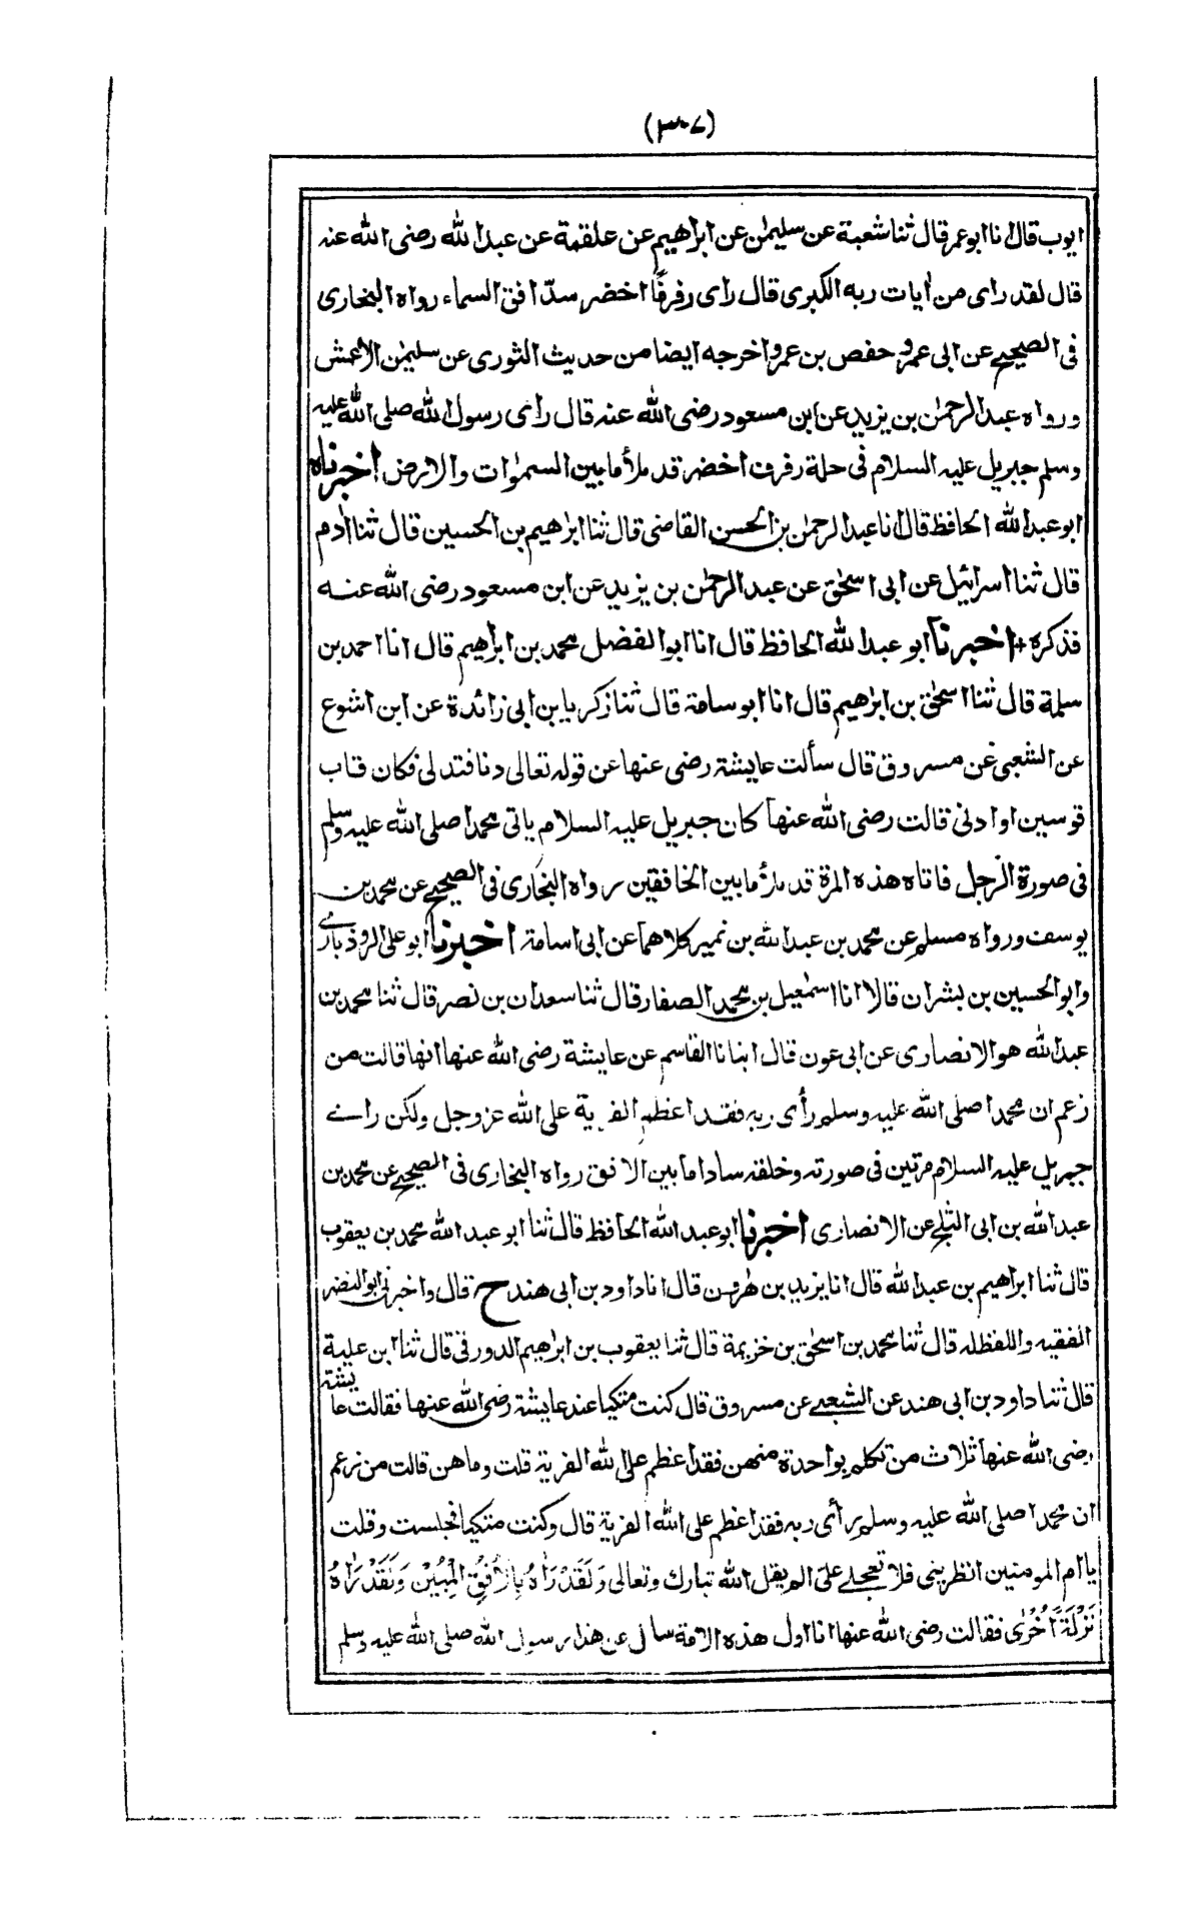 (٣٠٧)
ايوب قال انا ابو عمر قال ثنا شعبة عن سليمٰن عن ابرٰاهيم عن علقمة عن عبد الله رضى الله عنه
قال لقد راى من اٰيات ربه الكبرى قال راى رفرفًا اخضر سدّ افق السماء رواه البخارى
فى الصحيح عن ابى عمرو حفص بن عمر واخرجه ايضا من حديث الثورى عن سليمٰن الاعمش
ورواه عبد الرحمٰن بن يزيد عن ابن مسعود رضى الله عنه قال راى رسول الله صلى الله عليه
وسلم جبريل عليه السلام فى حلة رفرف اخضر قد ملأ ما بين السمٰوات والارض اخبرناه
ابو عبد الله الحافظ قال انا عبد الرحمٰن بن الحسن القاضى قال ثنا ابرٰهيم بن الحسين قال ثنا اٰدم
قال ثنا اسرائيل عن ابى اسحٰق عن عبد الرحمٰن بن يزيد عن ابن مسعود رضى الله عنه
فذكره + اخبرنا ابو عبد الله الحافظ قال انا ابو الفضل محمد بن ابرٰاهيم قال انا احمد بن
سلمة قال ثنا اسحٰق بن ابرٰهيم قال انا ابو سامة قال ثنا زكريا بن ابى زائدة عن ابن اشوع
عن الشعبى عن مسروق قال سألت عايشة رضى عنها عن قوله تعالى دنا فتدلى فكان قاب
قوسين او ادنى قالت رضى الله عنها كان جبريل عليه السلام ياتى محمدا صلى الله عليه وسلم
فى صورة الرجل فاتاه هذه المرة قد ملأ ما بين الخافقين رواه البخارى فى الصحيح عن محمد بن
يوسف ورواه مسلم عن محمد بن عبد الله بن نمير كلاهما عن ابى اسامة اخبرنا ابو على الروذبارى
وابو الحسين بن بشران قالا انا اسمٰعيل بن محمد الصفار قال ثنا سعدان بن نصر قال ثنا محمد بن
عبد الله هو الانصارى عن ابى عون قال انبانا القاسم عن عايشة رضى الله عنها انها قالت من
زعم ان محمدا صلى الله عليه وسلم رأى ربه فقد اعظم الفرية على الله عز وجل ولكن راى
جبريل عليه السلام مرتين فى صورته وخلقه سادا ما بين الافق رواه البخارى فى الصحيح عن محمد بن
عبد الله بن ابى الثلج عن الانصارى اخبرنا ابو عبد الله الحافظ قال ثنا ابو عبد الله محمد بن يعقوب
قال ثنا ابراهيم بن عبد الله قال انا يزيد بن هٰرون قال انا داود بن ابى هند ح قال واخبرنى ابو النضر
الفقيه واللفظ له قال ثنا محمد بن اسحٰق بن خزيمة قال ثنا يعقوب بن ابرٰهيم الدورقى قال ثنا ابن علية
قال ثنا داود بن ابى هند عن الشعبى عن مسروق قال كنت متكيا عند عايشة رضى الله عنها فقالت عايشة
رضى الله عنها ثلاث من تكلم بواحدة منهن فقد اعظم على الله الفرية قلت وما هن قالت من زعم
ان محمدا صلى الله عليه وسلم رأى ربه فقد اعظم على الله الفرية قال وكنت متكيا فجلست وقلت
يا ام المومنين انظرينى فلا تعجلى علىّ الم يقل الله تبارك وتعالى وَلَقَدْ رَاٰهُ بِالْاُفُقِ الْمُبِيْنِ وَلَقَدْ رَاٰهُ
نَزْلَةً اُخْرٰى فقالت رضى الله عنها انا اول هذه الامة سال عن هذا رسول الله صلى الله عليه وسلم